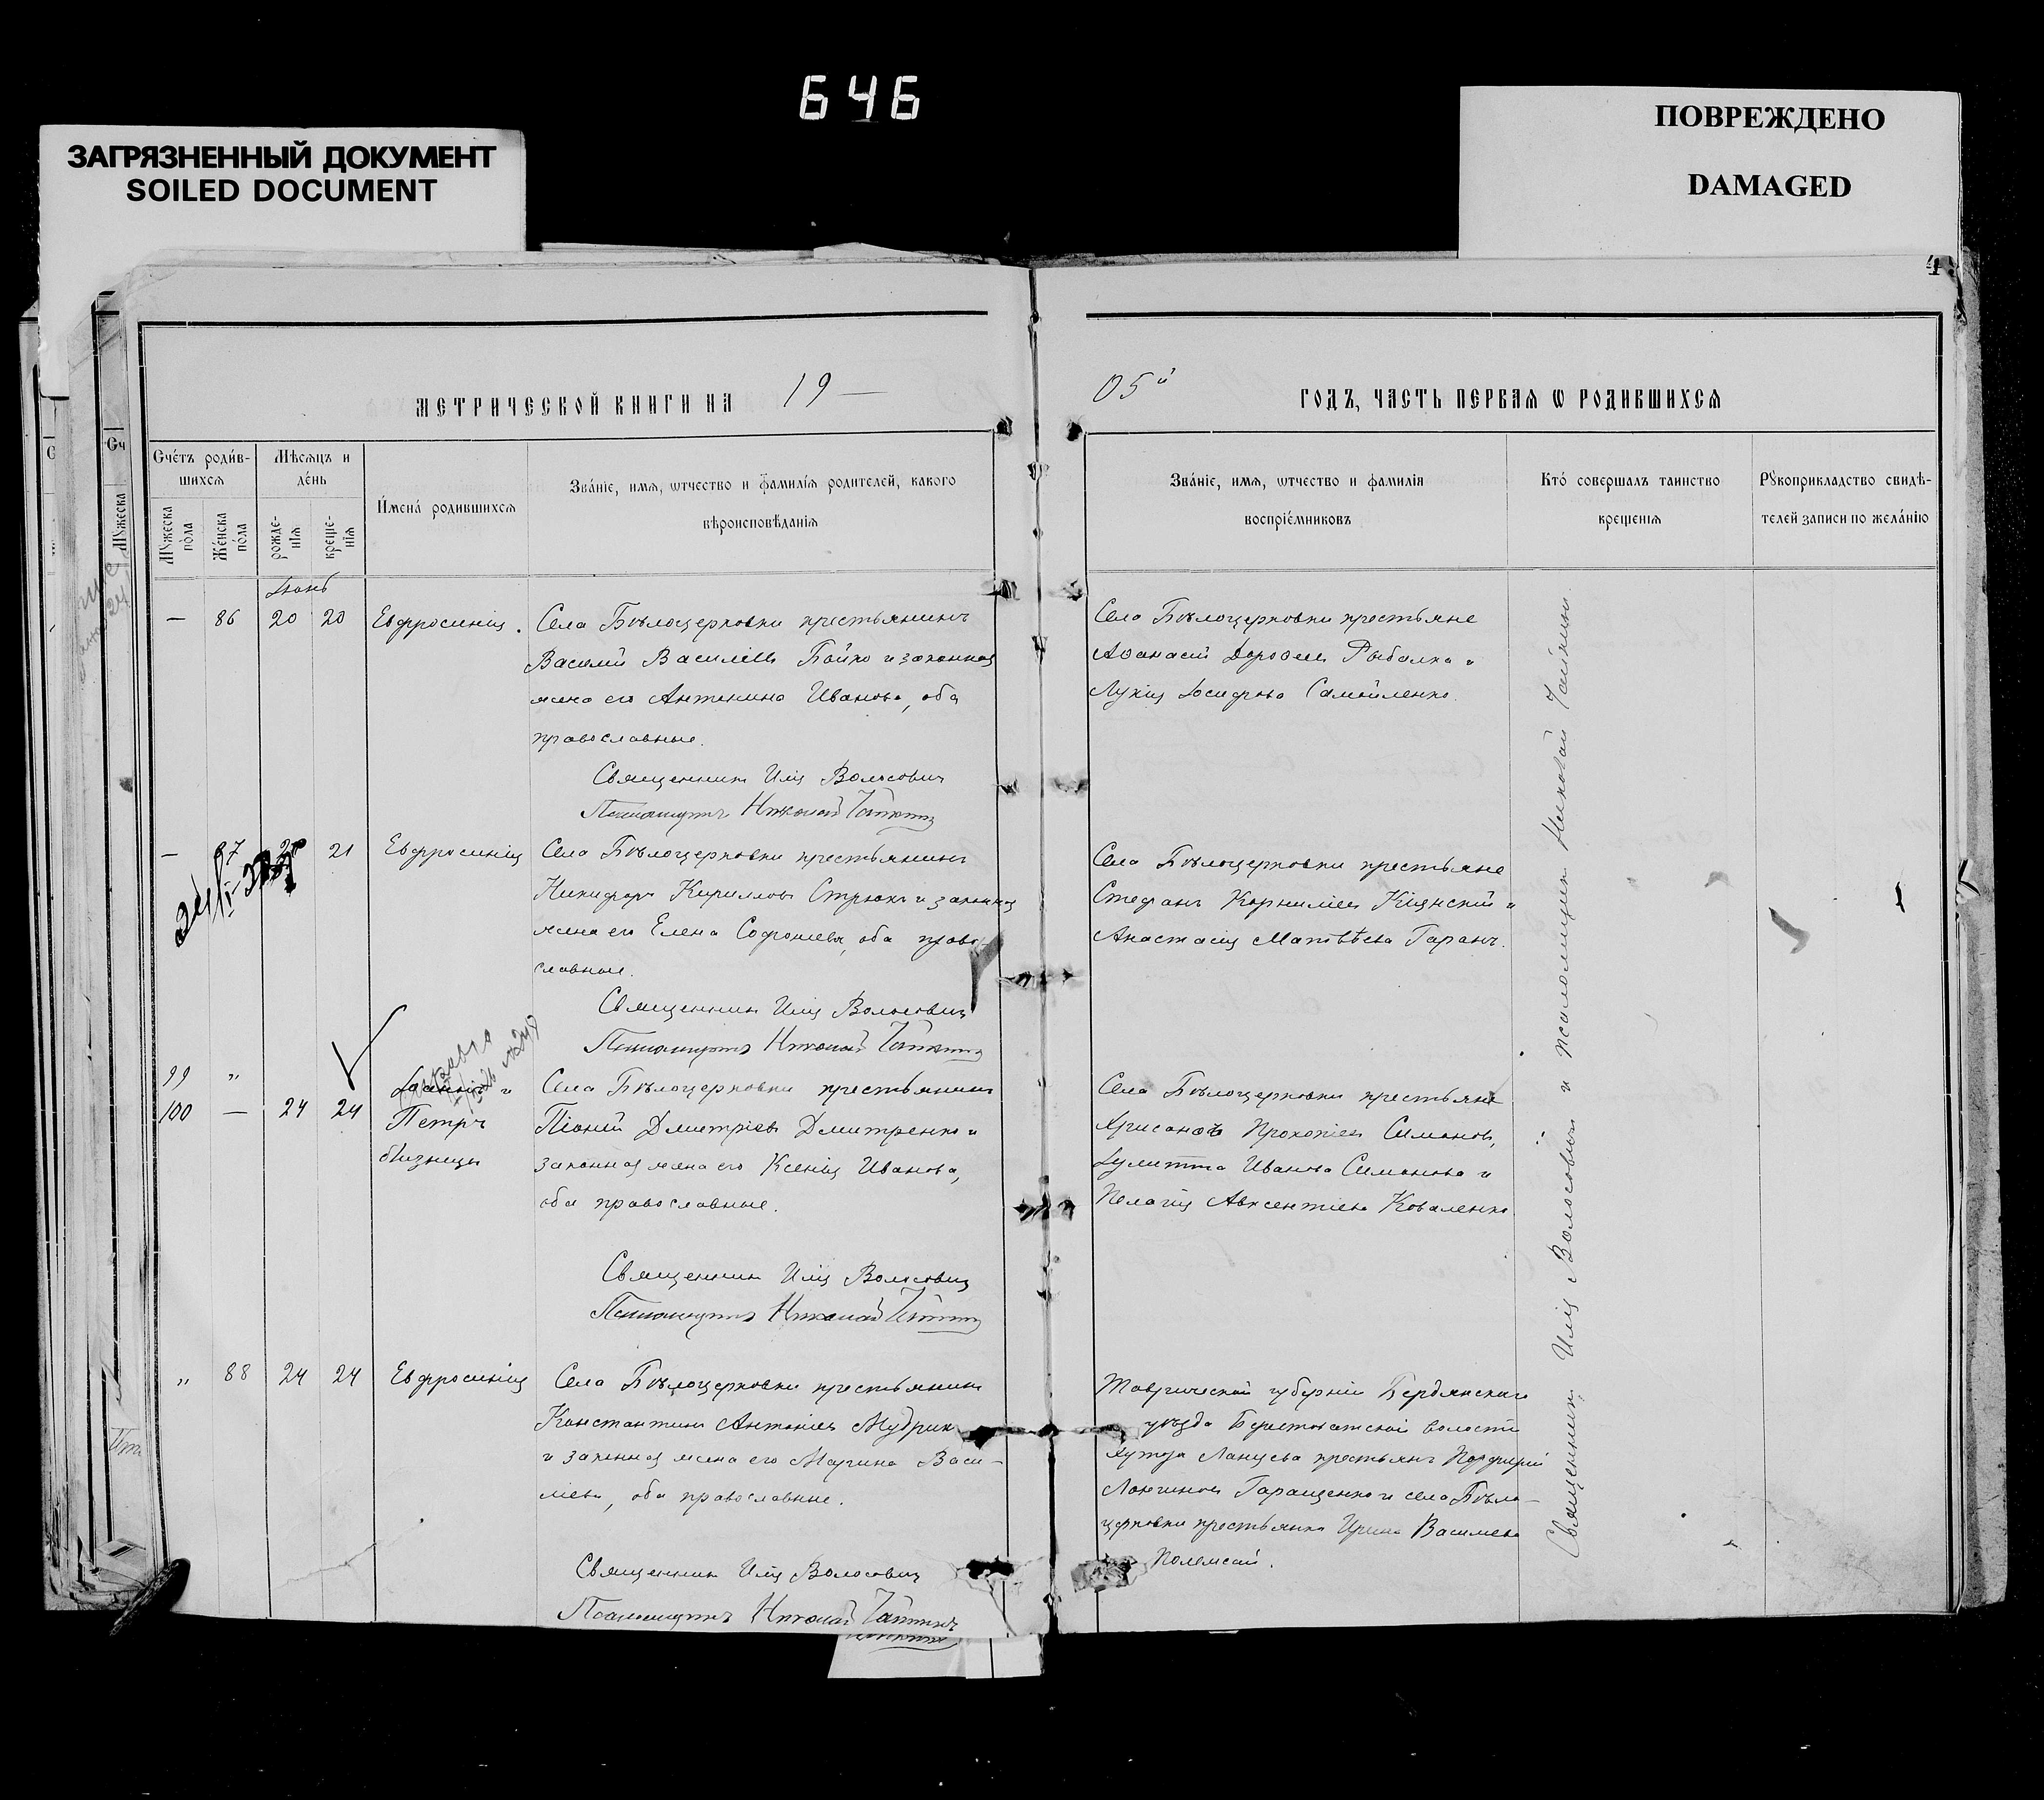 646
ЗАГРЯЗНЕННЫЙ ДОКУМЕНТ
SOILED DOCUMENT
ПОВРЕЖДЕНО
DAMAGED
МЕТРИЧЕСКОЙ КНИГИ НА 19 —
05й ГОДЪ, ЧАСТЬ ПЕРВАЯ Ѡ РОДИВШИХСЯ
Счетъ родив-
шихся
Мѣсяцъ и
день
Мужеска
пола
Женска
пола
рожде-
нія
креще-
нія
Имена родившихся
Званіе, имя, ѿчество и фамилія родителей, какого
вѣроисповѣданія
Званіе, имя, ѿчество и фамилія
воспріемниковъ
Кто совершалъ таинство
крещенія
Рукоприкладство свидѣ-
телей записи по желанію
Іюнь
— 86 20 20 Евфросинія.
Села Бѣлоцерковки крестьянинъ
Василій Василіевъ Бойко и законная
жена его Антонина Иванова, оба
православные.
Священникъ Илія Волосович
Псаломщикъ Николай
Села Бѣлоцерковки крестьяне
Аѳанасій Дороѳеев Рыбалка и
Лукія Іосифова Самойленко.
— 87 21 Евфросинія
Села Бѣлоцерковки крестьянинъ
Никифоръ Кириллов Стрюкъ и законная
жена его Елена Софрониева, оба право-
славные.
Священникъ Илія Волосович
Псаломщикъ Николай
Села Бѣлоцерковки крестьяне
Стефанъ Корниліев и
Анастасія Матвѣева Гаранъ.
99 "
100 — 24 24
Іоанній и
Петръ
близнецы
Села Бѣлоцерковки крестьянинъ
Піоній Дмитріевъ Дмитренко и
законная жена его Ксенія Иванова,
оба православные.
Священникъ Илія Волосович
Псаломщикъ Николай
Села Бѣлоцерковки крестьяне
Хрисанѳъ Прокопіев Симонов,
Іулитта Иванова Симонова и
Пелагія Авксентіева Коваленко
" 88 24 24 Евфросинія
Села Бѣлоцерковки крестьянинъ
Константинъ Антоніев Мудрик
и законная жена его Марина Васи-
лиева, оба православные.
Священникъ Илія Волосович
Псаломщикъ Николай
Таврической губерніи Бердянскаго
уѣзда Берестоватской волости
хутора Ланцева крестьянъ Порфирій
Логинов Гаращенко и села Бѣло-
церковки крестьянка Ирина Василиева
Священникъ Илія Волосович и псаломщикъ Николай